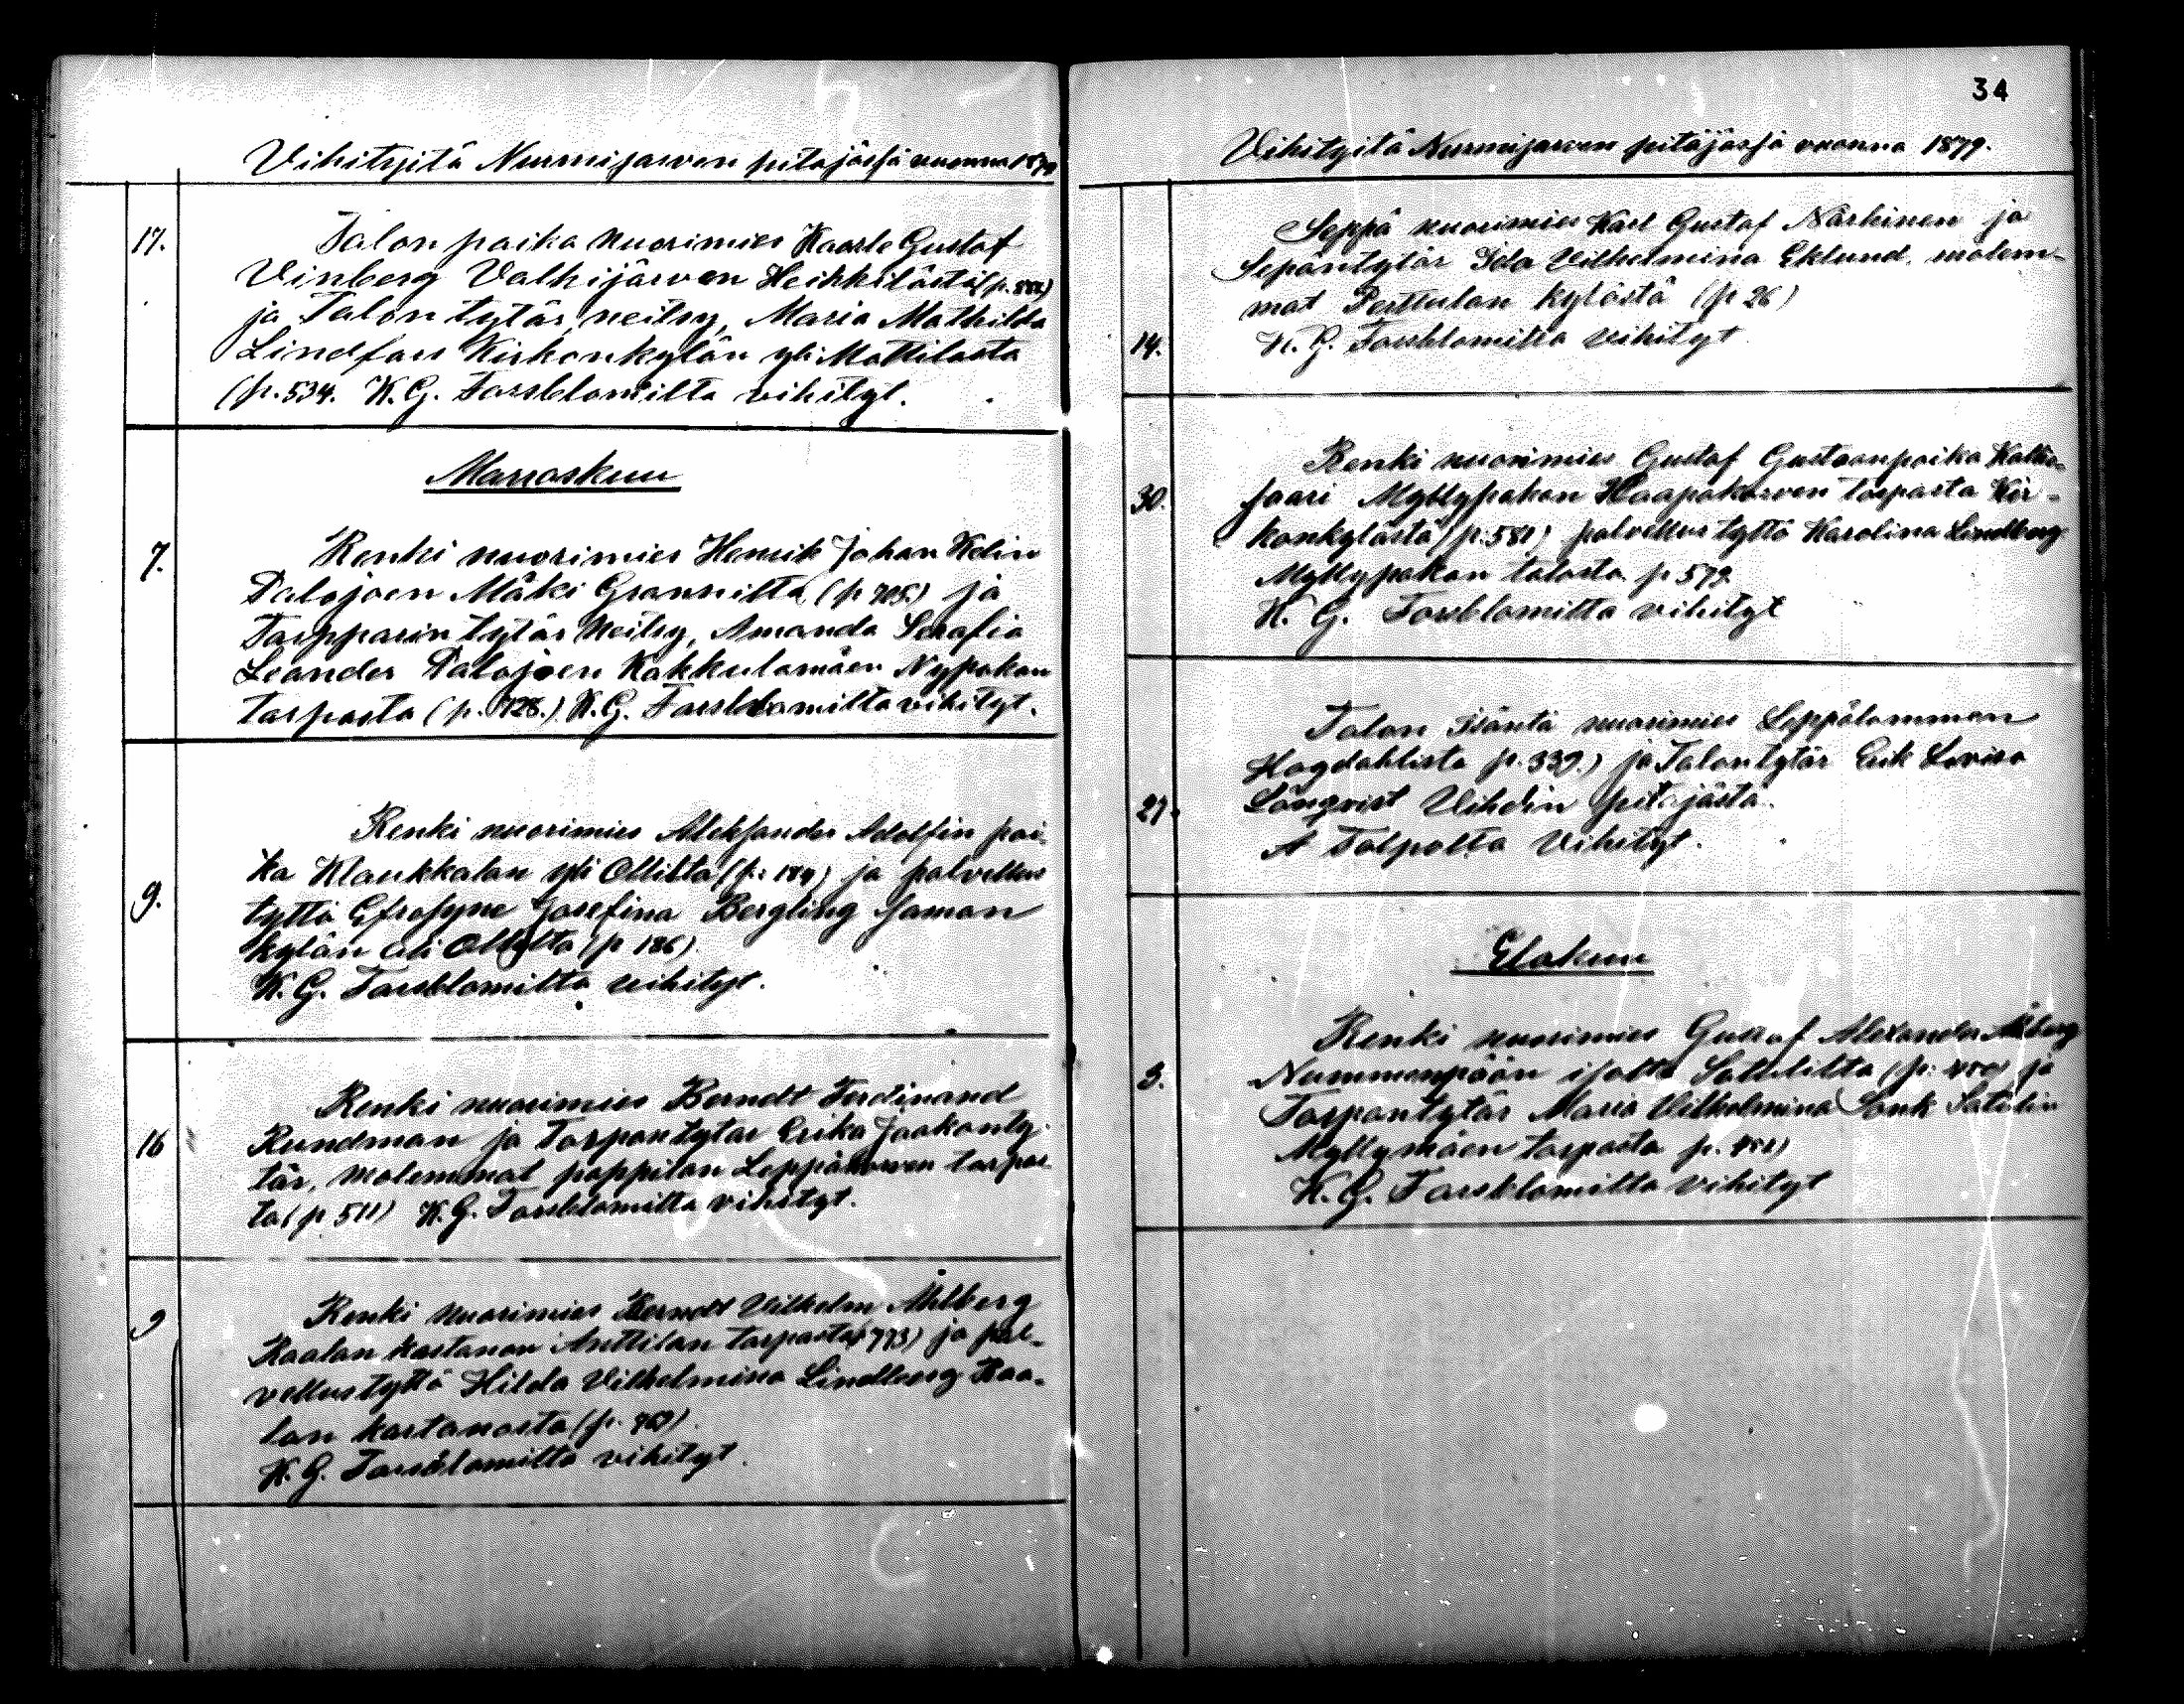 Vihityitä Nurmijärven pitäjässä vuonna 1879
17.
Talon poika nuorimies Kaarle Gustaf
Vinberg Valkijärven Heikkilästä (p.
ja Talon tytär, neitsy, Maria Mathilda
Lindfors Kirkonkylän yli Mattilasta
(p. 534. K. G. Forsblomilta vihityt.
Marraskuu
7.
Renki nuorimies Henrik Johan Kelin
Palojoen Mäki Grannilta (p 705.) ja
Torpparin tytär Neitsy, Amanda Serafia
Leander Palojoen Kakkulamäen Nypakan
torpasta (p. 728.) K. G. Forsblomilta vihityt.
9.
Renki nuorimies Aleksander Adolfin poi-
ka Klaukkalan yli Ollilta (p: 184) ja palvellus
tyttö Efrosyne Josefina Bergling saman
kylän ali Ollilta (p 186)
K. G. Forsblomilta vihityt.
16
Renki nuorimies Berndt Ferdinand
Rundman ja Torpantytar Erika Jaakonty-
tär, molemmat pappilan Leppäkorven torpas-
ta (p 511) K. G. Forsblomilta vihityt.
9
Renki nuorimies Berndt Vilhelm Ahlberg
Raalan kartanon Anttilan torpasta (773) ja pal-
vellustyttö Hilda Vilhelmina Lindberg Raa-
lan kartanosta (p. 769)
K. G. Forsblomilta vihityt.
34
Vihityitä Nurmijärven pitäjässä vuonna 1879.
Seppä nuorimies Karl Gustaf Närhinen ja
Sepäntytär Ida Vilhelmina Eklund, molem-
mat Perttulan kylästä (p 26)
14.
K. G. Forsblomilta vihityt
Renki nuorimies Gustaf Gustaanpoika Kallio-
30.
saari Myllypakan Haapakorven torpasta Kir-
konkylästä (p. 581) palvellus tyttö Karolina Lindberg
Myllypakan talosta p 579.
K. G. Forsblomilta vihityt
Talon Isäntä nuorimies Leppälammen
Hagdahlista p. 339.) ja Talontytär Erik Lovisa
27.
Lönqvist Vihdin pitäjästä.
A Talpolta Vihityt.
Elokuu
Renki nuorimies Gustaf Alexander
3.
Nummenpään isolta Sätililtä (p: ja
Torpantytär Maria Vilhelmina Lonk Sätilin
Myllymäen torpasta p.
K. G. Forsblomilta vihityt